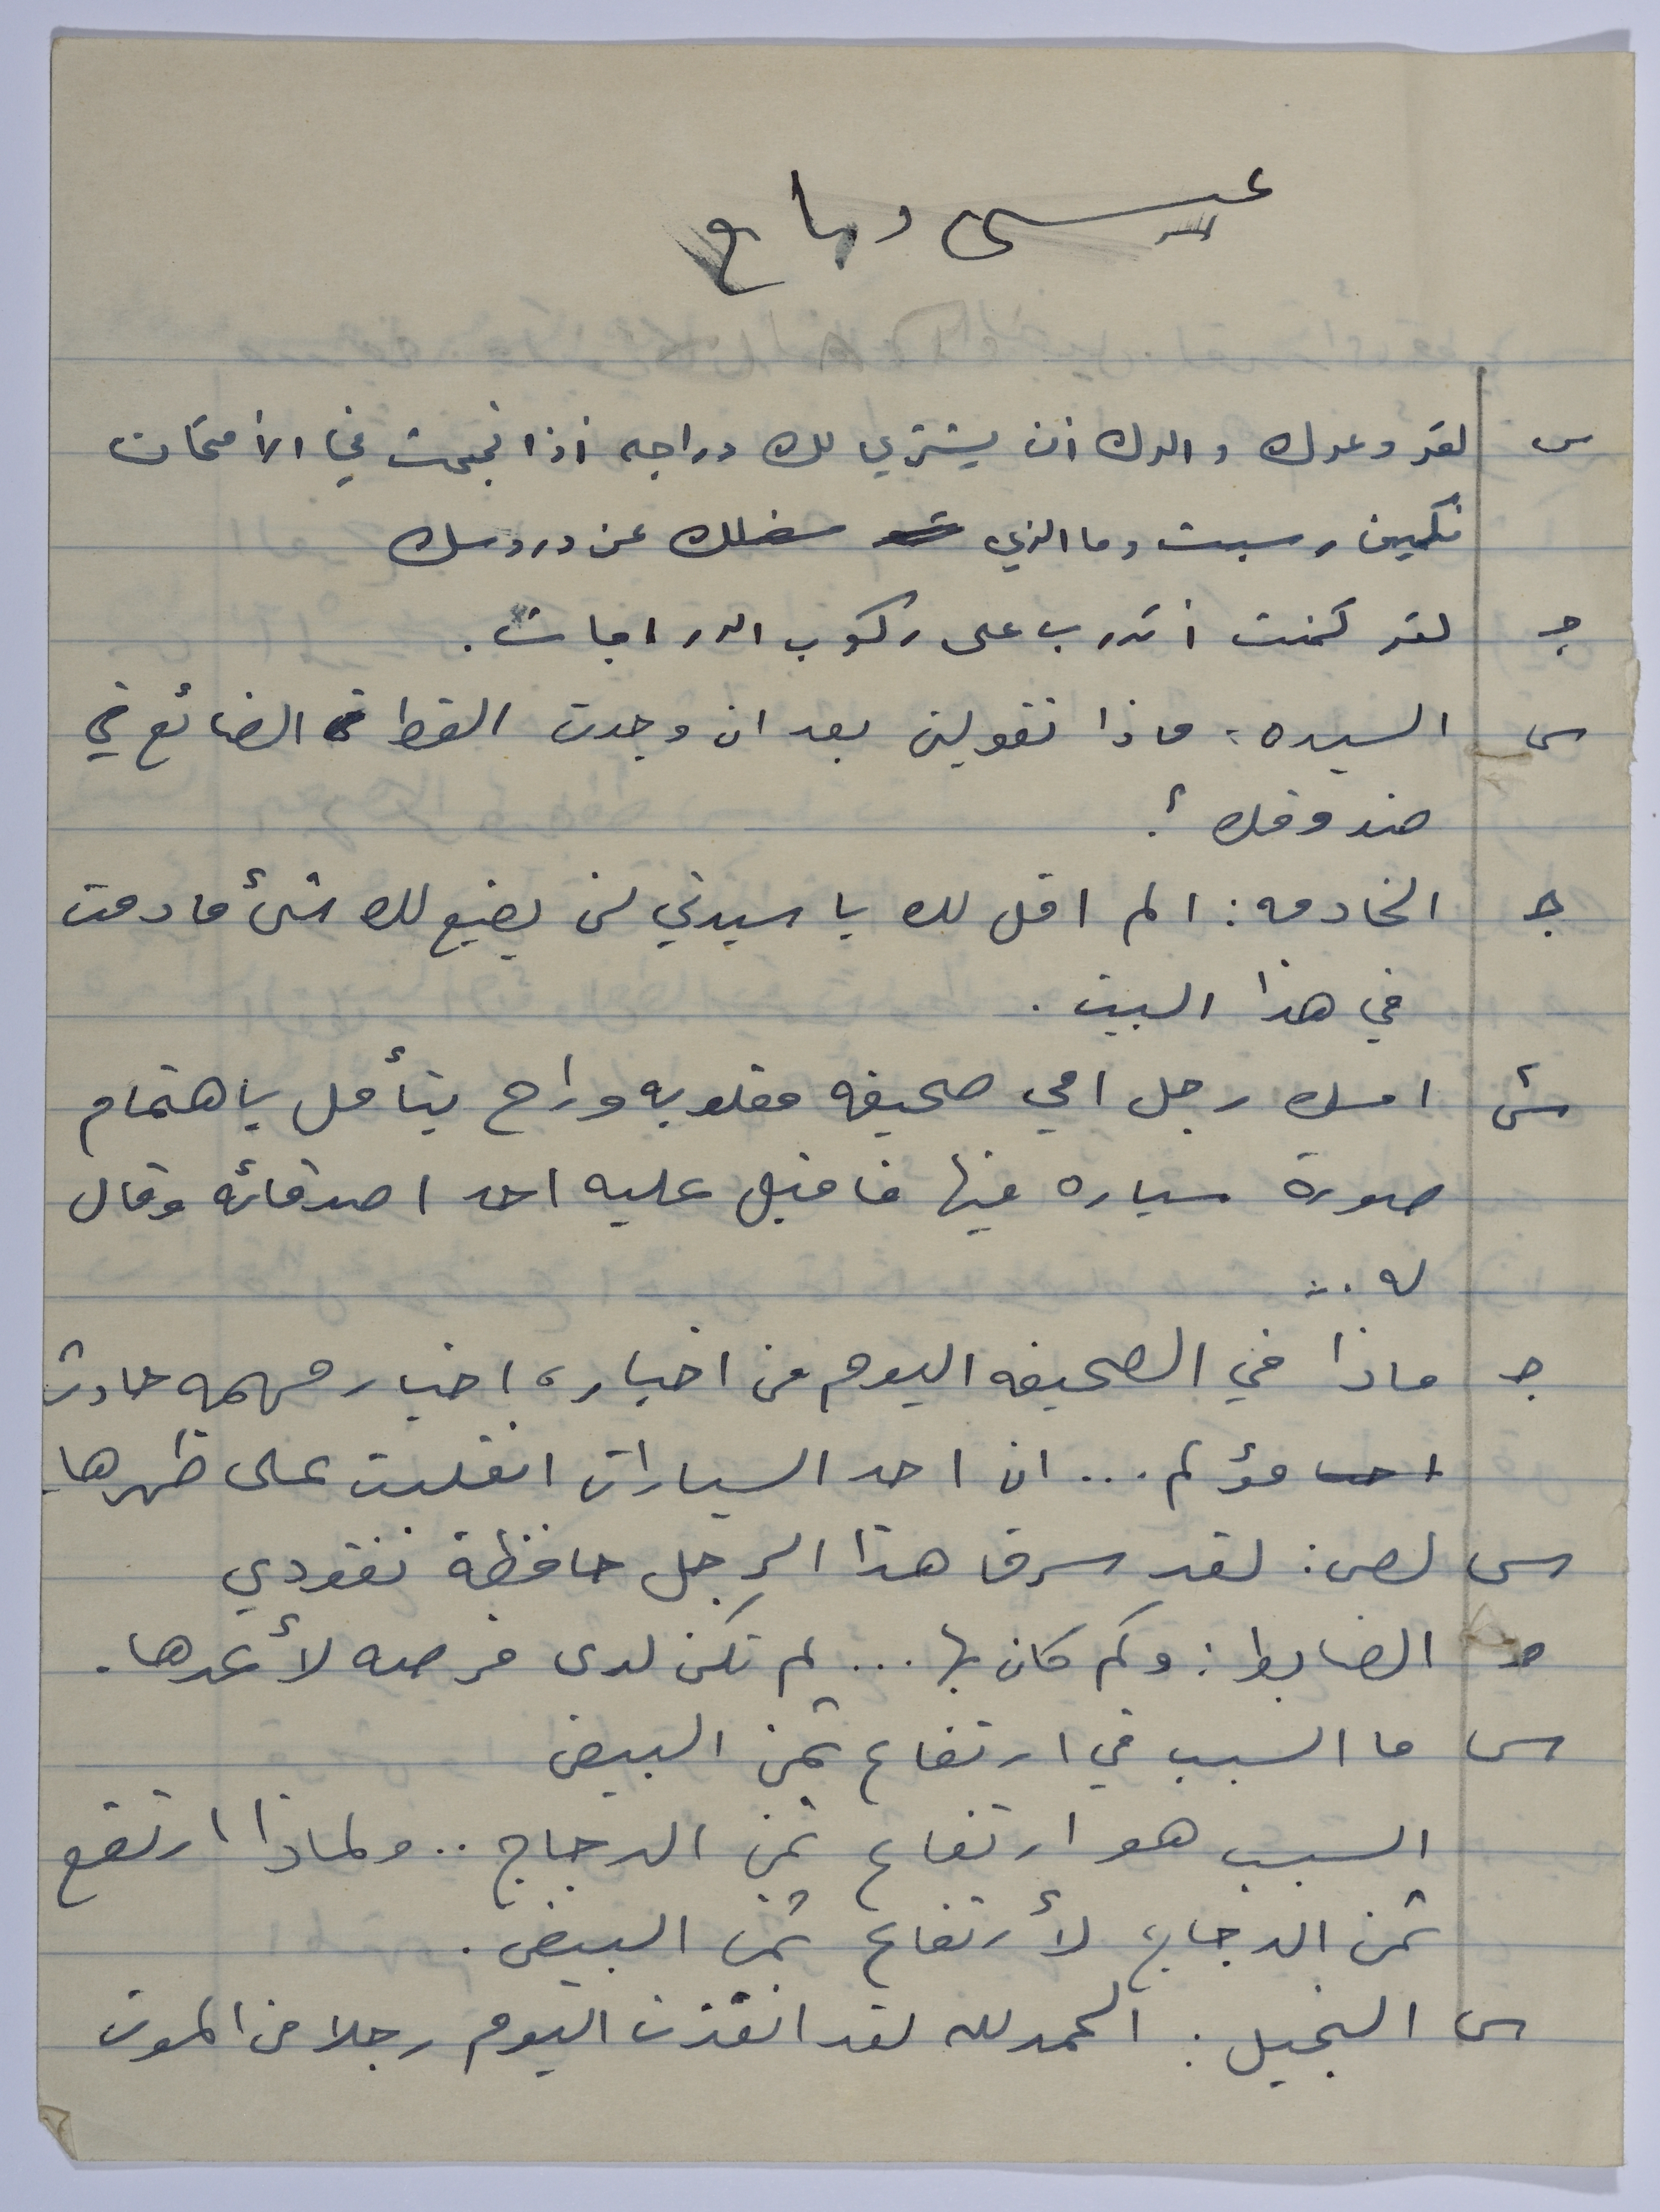 عيسى دباع
س لقد وعدك والدك أن يشتري لك دراجه أذا نجحت في الأمتحان
فكيف رسبت وما الذي شغلك عن دروسك
ج لقد كنت أتدرب على ركوب الدراجات .
س السيده : ماذا تقولين بعد ان وجدت القط الضائع في
صندوقك ؟
ج الخادمه : الم اقل لك يا سيدتي لن يضيع لك شئ ما دمت
في هذا البيت .
س امسك رجل امي صحيفه مقلوبه وراح يتأمل باهتمام
صورة سياره فيها فاقبل عليه احد اصدقائه وقال
له ..
ج ماذا في الصحيفه اليوم من اخبار ، اخبار مهمه حادث
مؤلم ... ان احد السيارات انقلبت على ظهرها .
س لص : لقد سرق هذا الرجل حافظة نقودي
ج الضابط : وكم كان بها ... لم تكن لدى فرصه لأعدها .
س ما السبب في ارتفاع ثمن البيض
السبب هو ارتفاع ثمن الدجاج .. ولماذا ارتفع
ثمن الدجاج لأرتفاع ثمن البيض .
س البخيل : الحمدلله لقد انقذت اليوم رجلا من الموت